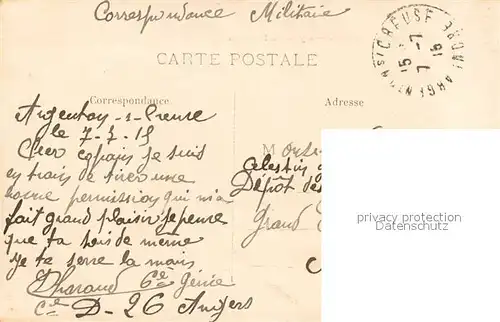 Correspondance Militaire
CARTE POSTALE
CREUSE
15 - 7-7 15
Correspondance
Adresse
Argenton-s-Creuse
le 7-7-15
Cher copain je suis
en train de tirer une
bonne permission qui m'a
fait grand plaisir je pense
que ta sois de même
je te serre la main
6e Génie
Cie D-26 Angers
Celestin
Dépôt des
Grand
privacy protection
Datenschutz